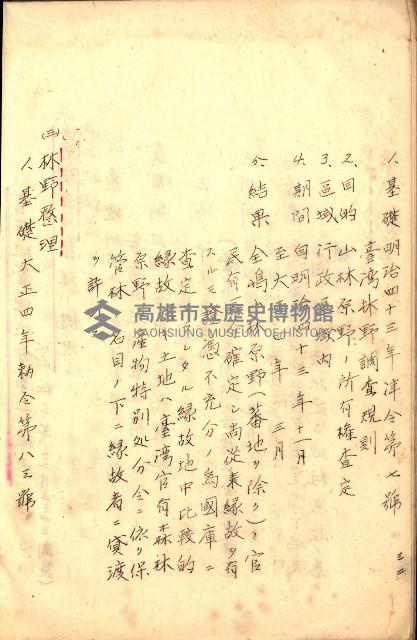 1、基礎 明治四十三年 律令第七號
臺湾林野調査規則
2、目的 山林原野ノ所有權査定
3、區域 行政區域内
4、期間 自明治四十三年十一月
至大 年 三月
5、結果 全嶋山林原野(蕃地ヲ除ク)ノ官
民有 確定シ尚従来縁故ヲ有
スルモ 憑不充分ノ為國庫ニ
査定 シタル縁故地中比較的
縁故 土地ハ臺湾官有森林
原野 産物特別処分令ニ依リ保
管林 名目ノ下ニ縁故者ニ貸渡
ヲ許
(三) 林野整理
1、基礎 大正四年勅令第八三號
高雄市立歷史博物館
KAOHSIUNG MUSEUM OF HISTORY